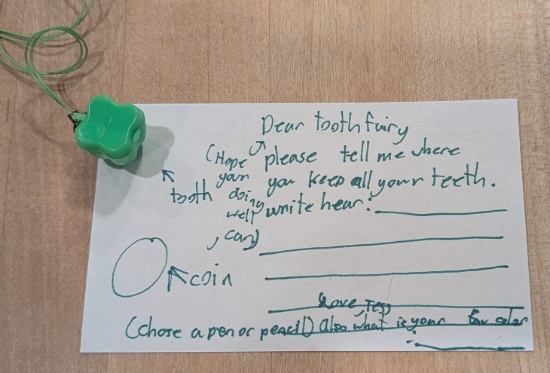 Dear tooth fairy
(Hope your doing well, Can)
please tell me where
you keep all your teeth.
write hear:
tooth
coin
Love, Tess
(chose a pen or pencil) Also what is your fav color
: